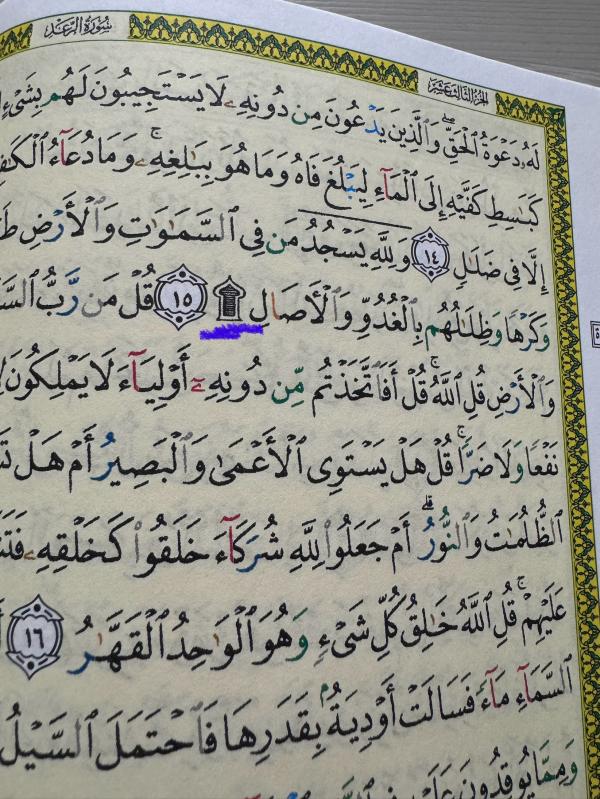 الجُزْءُ الثَّالِثَ عَشَرَ
سُورَةُ الرَّعْدِ
لَهُۥ دَعْوَةُ ٱلْحَقِّۖ وَٱلَّذِينَ يَدْعُونَ مِن دُونِهِۦ لَا يَسْتَجِيبُونَ لَهُم بِشَىْءٍ
كَبَـٰسِطِ كَفَّيْهِ إِلَى ٱلْمَآءِ لِيَبْلُغَ فَاهُ وَمَا هُوَ بِبَـٰلِغِهِۦۚ وَمَا دُعَآءُ ٱلْكَـٰفِ
إِلَّا فِى ضَلَـٰلٍ ١٤ وَلِلَّهِ يَسْجُدُ مَن فِى ٱلسَّمَـٰوَٰتِ وَٱلْأَرْضِ طَ
وَكَرْهًا وَظِلَـٰلُهُم بِٱلْغُدُوِّ وَٱلْـَٔاصَالِ ۩ ١٥ قُلْ مَن رَّبُّ ٱلسَّ
وَٱلْأَرْضِ قُلِ ٱللَّهُۚ قُلْ أَفَٱتَّخَذْتُم مِّن دُونِهِۦٓ أَوْلِيَآءَ لَا يَمْلِكُونَ لِ
نَفْعًا وَلَا ضَرًّاۚ قُلْ هَلْ يَسْتَوِى ٱلْأَعْمَىٰ وَٱلْبَصِيرُ أَمْ هَلْ تَ
ٱلظُّلُمَـٰتُ وَٱلنُّورُۗ أَمْ جَعَلُوا۟ لِلَّهِ شُرَكَآءَ خَلَقُوا۟ كَخَلْقِهِۦ فَتَشَ
عَلَيْهِمْۚ قُلِ ٱللَّهُ خَـٰلِقُ كُلِّ شَىْءٍ وَهُوَ ٱلْوَٰحِدُ ٱلْقَهَّـٰرُ ١٦
ٱلسَّمَآءِ مَآءً فَسَالَتْ أَوْدِيَةٌۢ بِقَدَرِهَا فَٱحْتَمَلَ ٱلسَّيْلُ
وَمِمَّا يُوقِدُونَ عَلَيْهِ فِى